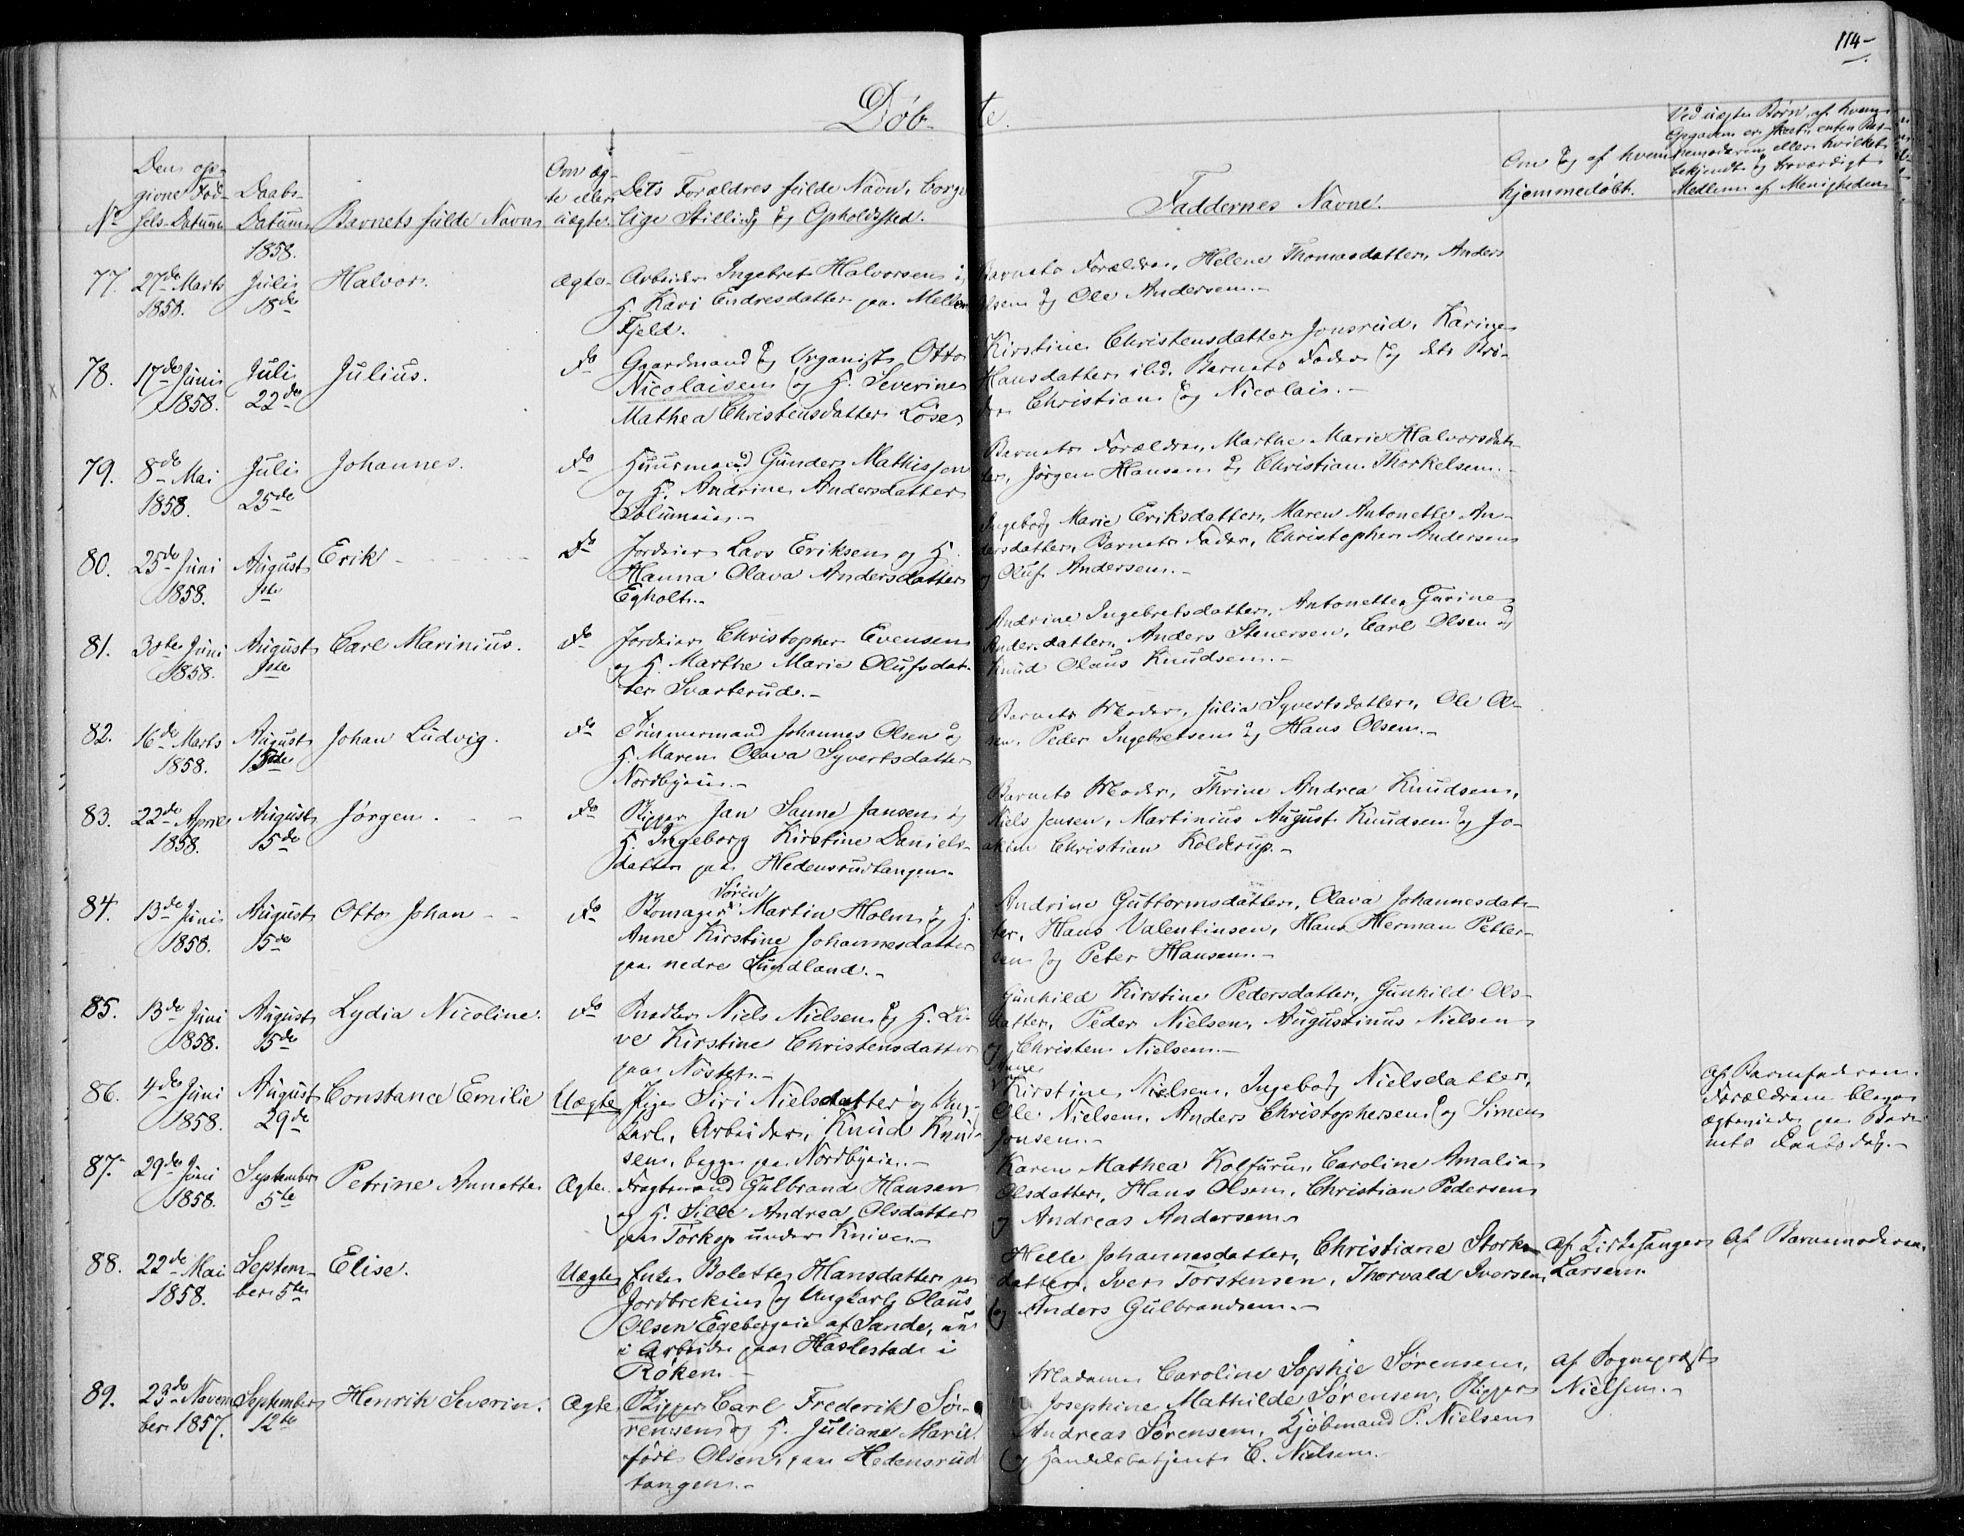 114-
Döbte.
No
Den opgivne Fødsels-Datum
Daabs-Datum
Barnets fulde Navn
Om ægte eller uægte.
Dets Forældres fulde Navn, borgerlige Stilling og Opholdssted.
Faddernes Navne.
Om og af hvem hjemmedøbt.
Ved uægte Børn, af hvem Opgaven er skeet, enten Barnemoderen eller hvilket bekjendt og troværdigt Medlem af Menigheden
1858.
77. 27de Marts 1858. Juli 18de Halvor. Ægte.
Arbeider Ingebret Halvorsen og
H. Kari Endresdatter paa Mellem
Fjeld.
Barnets Forældre, Helene Thomasdatter, Anders
Olsen og Ole Andersen.-
78. 17de Juni 1858. Juli 22de Julius. Do
Gaardmand og Organist Otto
Nicolaisen og H. Severine
Mathea Christensdatter Løse
Kirstine Christensdatter Jonsrud, Karine
Hansdatter ibd. Barnets Fader og dets Brø-
dre Christian og Nicolai.-
79. 8de Mai 1858. Juli 25de Johannes. Do
Huusmand Gunder Mathissen
og H. Andrine Andersdatter
Solumeie.-
Barnets Forældre, Marthe Marie Halvorsdat-
ter, Jørgen Hansen og Christian Thorkelsen.-
80. 25de Juni 1858. August 1ste Erik Do
Jordeier Lars Eriksen og H.
Hanna Olava Andersdatter
Egholt.-
Ingeborg Marie Eriksdatter, Maren Antonette An-
dersdatter, Barnets Fader, Christopher Andersen
og Oluf Andersen.-
81. 30te Juni 1858. August 1ste Carl Marinius. Do
Jordeier Christopher Evensen
og H. Marthe Marie Olufsdat-
ter Svarterud.-
Andrine Ingebretsdatter, Antonette Gurine
Andersdatter, Anders Stenersen, Carl Olsen og
Knud Olaus Knudsen.-
82. 16de Marts 1858. August 15de Johan Ludvig. Do
Tømmermand Johannes Olsen og
H. Maren Olava Syvertsdatter
Nordbyeie.-
Barnets Moder, Julia Syvertsdatter, Ole Ol-
sen, Peder Ingebretsen og Hans Olsen.-
83. 22de April 1858. August 15de Jørgen. Do
Skipper Jan Sanne Jansen og
H. Ingeborg Kirstine Daniels-
datter paa Hedensrudtangen.
Barnets Moder, Thrine Andrea Knudsen,
Niels Jensen, Martinius August Knudsen og Jo-
akim Christian Kolderup.-
84. 13de Juni 1858. August 15de Otto Johan Do
Skomager Søren Martin Holm og H.
Anne Kirstine Johannesdatter
paa nedre Sundland.-
Andrine Guttormsdatter, Olava Johannesdat-
ter, Hans Valentinsen, Hans Herman Petter-
sen og Peter Hansen.-
85. 13de Juni 1858. August 15de Lydia Nicoline. Do
Snedker Niels Nielsen og H. Li-
ve Kirstine Christensdatter
paa Nøstet.-
Gunhild Kirstine Pedersdatter, Gunhild Ols-
datter, Peder Nielsen, Augustinus Nielsen
og Christen Nielsen.-
86. 4de Juni 1858. August 29de Constance Emilie Uægte
Pige Siri Nielsdatter og Ung-
karl, Arbeider, Knud Knud-
sen, begge paa Nordbyeie.-
Anne
Kirstine Nielsen, Ingeborg Nielsdatter,
Ole Nielsen, Anders Christophersen og Simen
Jonsen.-
Af Barnefaderen.
Forældrene bleve
ægteviede paa Bar-
nets Daabsdag.-
87. 29de Juni 1858. September 5te Petrine Annette Ægte.
Fragtmand Gulbrand Hansen
og H. Sille Andrea Olsdatter
paa Torkop under Kniven.-
Karen Mathea Kolfuru, Caroline Amalia
Olsdatter, Hans Olsen, Christian Pedersen
og Andreas Andersen.
88. 22de Mai 1858. September 5te Elise. Uægte
Enke Bolette Hansdatter paa
Jordbrekeie og Ungkarl Olaus
Olsen Egebergeie af Sande, nu
i Arbeide paa Haslestad i
Røken.-
Helle Johannesdatter, Christiane Storke-
datter, Iver Torstensen, Thorvald Iversen
og Anders Gulbrandsen.-
Af Kirkesanger
Larsen.
Af Barnemoderen.
89. 23de November 1857. September 12te Henrik Severin. Ægte.
Skipper Carl Frederik Sø-
rensen og H. Juliane Marie
født Olsen, paa Hedensrud-
tangen.-
Madame Caroline Sophie Sørensen,
Josephine Mathilde Sørensen, Skipper
Andreas Sørensen, Kjøbmand P. Nielsen
og Handelsbetjent C. Nielsen.-
Af Sognepræst
Nielsen.-